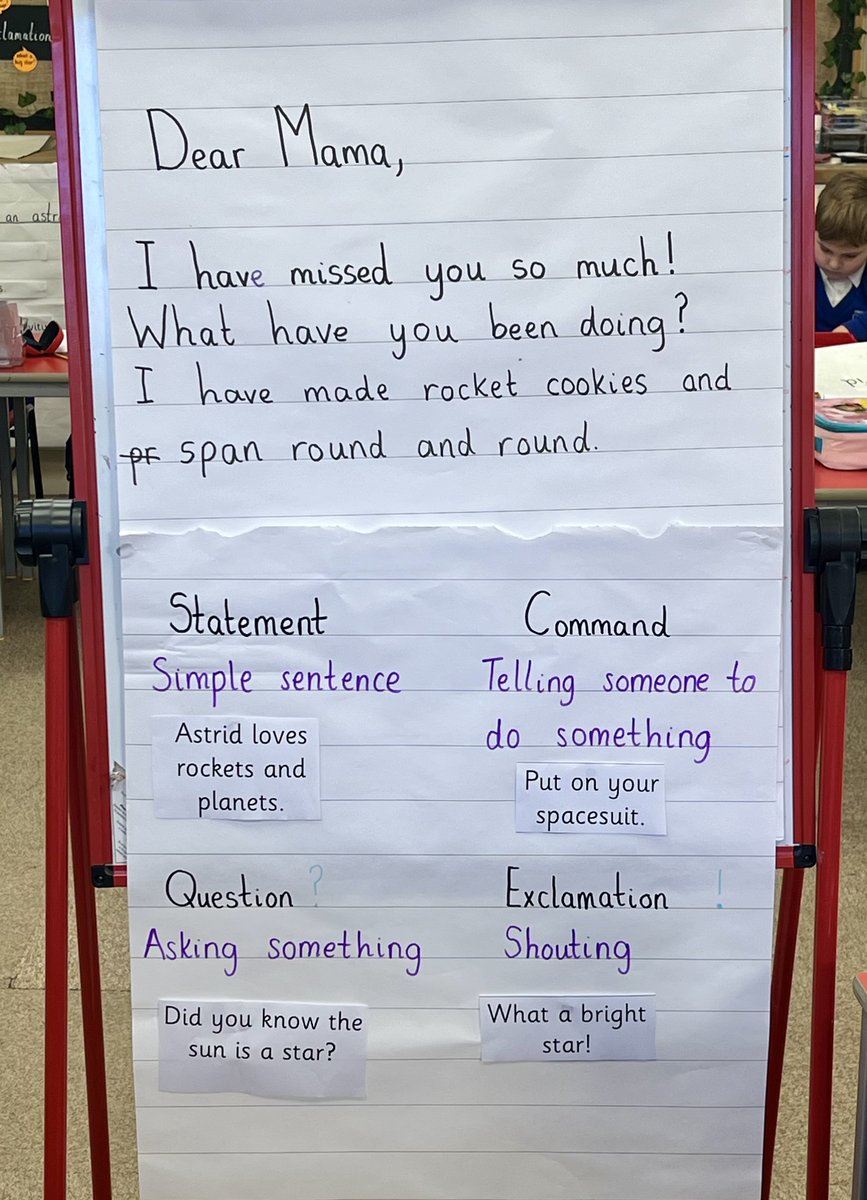 clamation
What a
big star!
an astr
Dear Mama,
I have missed you so much!
What have you been doing?
I have made rocket cookies and
pr span round and round.
Statement
Simple sentence
Astrid loves
rockets and
planets.
Command
Telling someone to
do something
Put on your
spacesuit.
Question ?
Asking something
Did you know the
sun is a star?
Exclamation !
Shouting
What a bright
star!